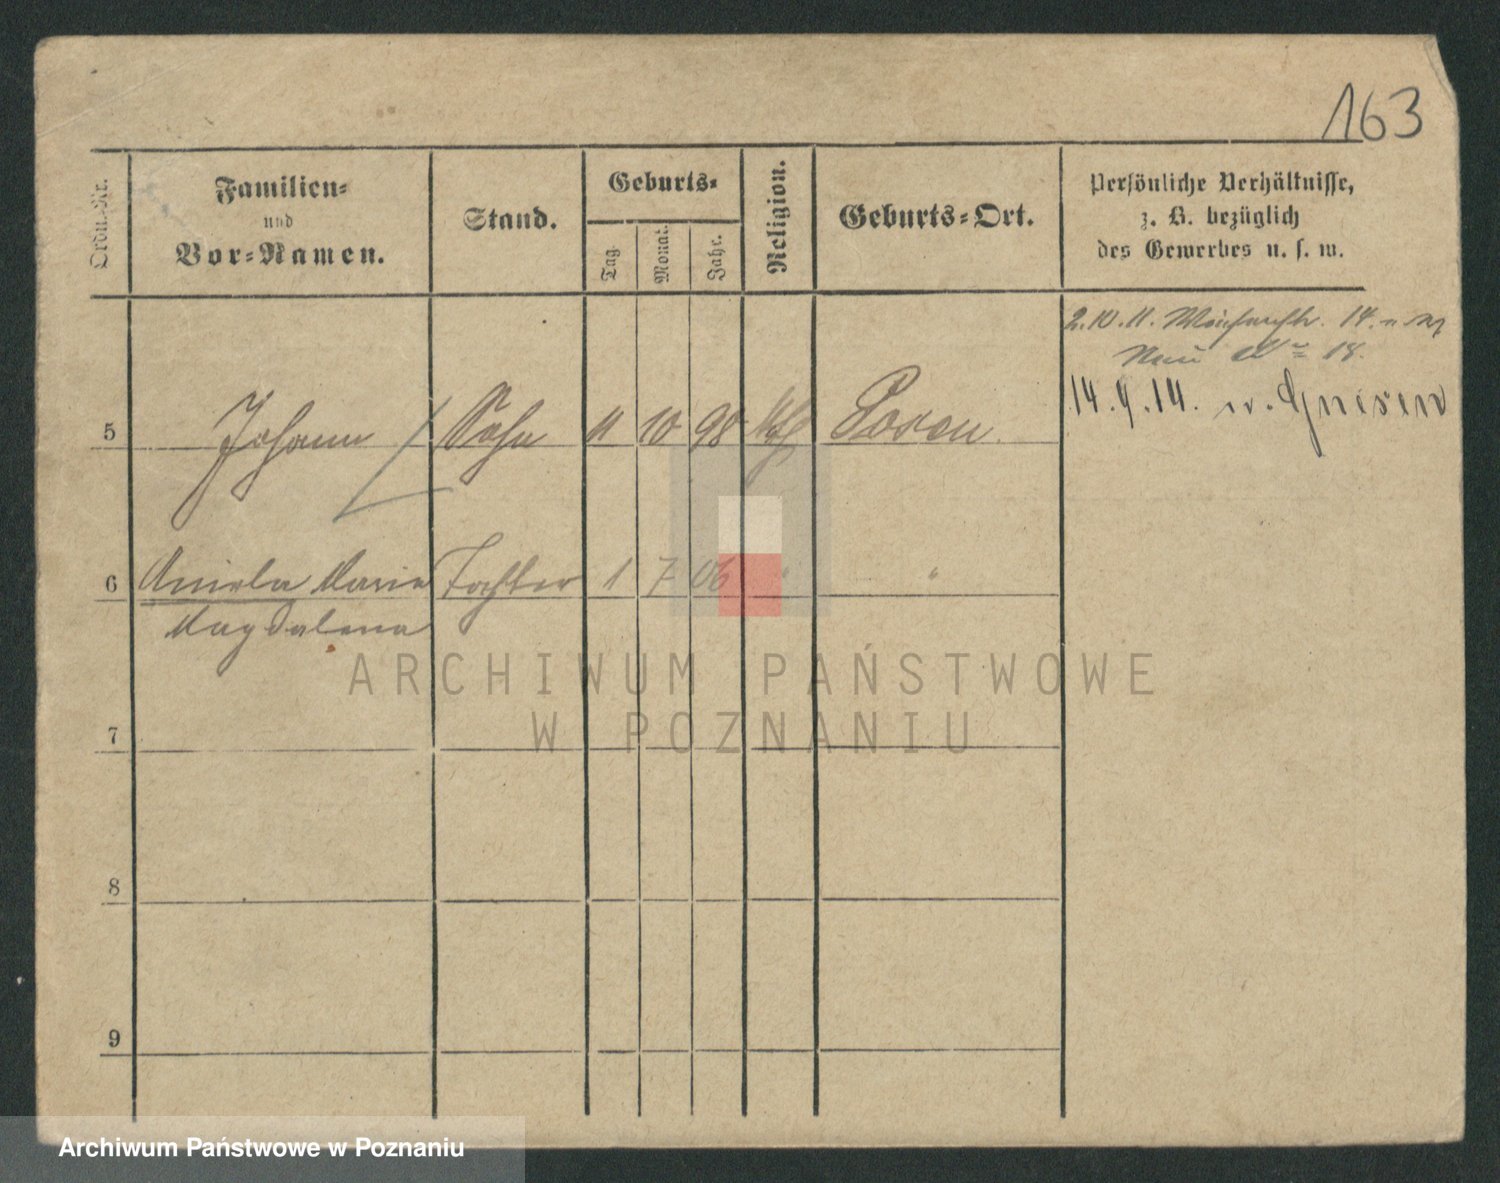 163
Ordn.-Nr.
Familien-
und
Vor-Namen.
Stand.
Geburts-
Tag.
Monat.
Jahr.
Religion.
Geburts-Ort.
Persönliche Verhältnisse,
z. B. bezüglich
des Gewerbes u. s. w.
2.10.11. 14.
18.
14.9.14. Gnesen
5 Johann Sohn 11 10 98 Posen.
6 Aniela Maria Tochter 1 7 06 " "
Magdalena
7
8
9
ARCHIWUM PAŃSTWOWE
W POZNANIU
Archiwum Państwowe w Poznaniu